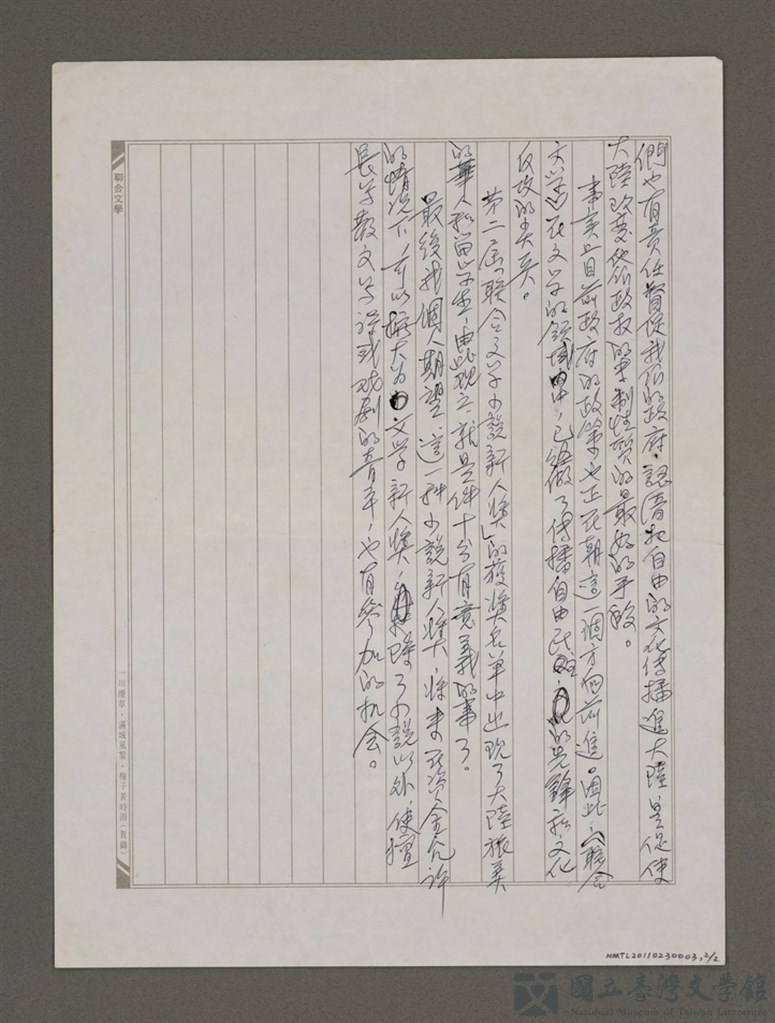 們也有責任督促我們的政府,認清把自由的文化傳播進大陸,是促使
大陸改變他們政权的專制性質的最好的手段。
事實上目前政府的政策也正在朝這一個方向前進。因此,「聯合
文學」在文学的領域中,已經做了傳播自由民主的先鋒和文化
反攻的尖兵。
第二屆「联合文学小說新人獎」的獲獎名單中出現了大陸旅美
的華人和留学生,由此观之,就是件十分有意義的事了。
最後我個人期望,這一种小說新人獎,將來在資金允許
的情況下,可以擴大為文学新人獎,除了小說以外,使擅
長学散文、詩或戏劇的青年,也有參加的机会。
聯合文學
一川煙草,滿城風絮,梅子黃時雨(賀鑄)
NMTL20110230003,2/2
國立臺灣文學館
National Museum of Taiwan Literature